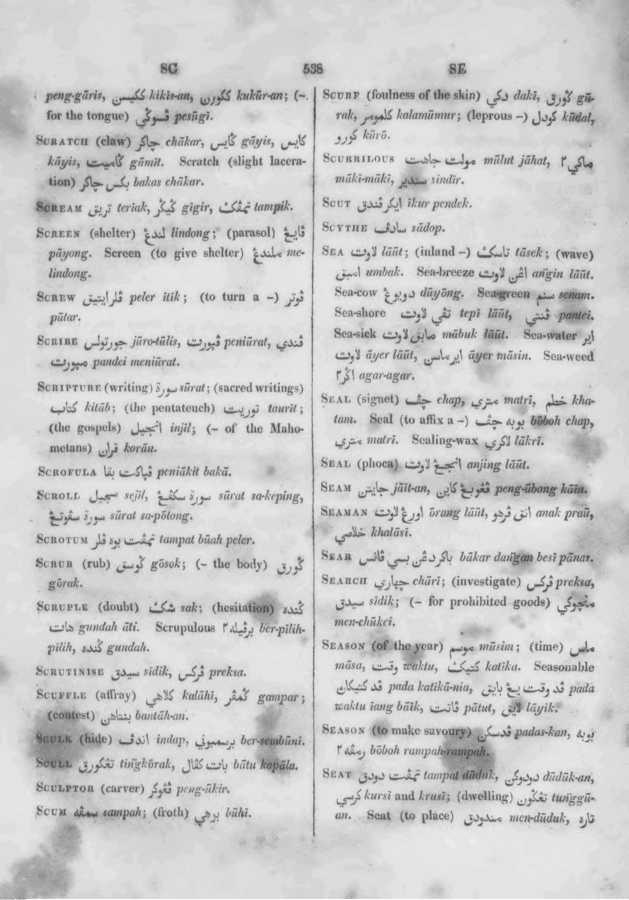 SC 538 SE
peng-gāris, ككيسن kikis-an, ككورن kukūr-an; (-.
for the tongue) ڤسوڬي pesūgi.
SCRATCH (claw) چاكر chākar, ڬايس gāyis, كايس
kāyis, ڬاميت gāmit. Scratch (slight lacera-
tion) بكس چاكر bakas chākar.
SCREAM تريق teriak, ڬيڬر gigir, تمڤق tampik.
SCREEN (shelter) لندڠ lindong; (parasol) ڤايڠ
pāyong. Screen (to give shelter) ملندڠ me-
lindong.
SCREW ڤلر ايتيق peler ītik; (to turn a -) ڤوتر
pūtar.
SCRIBE جورتولس jūro-tūlis, ڤپورت peniūrat, ڤندي
مپورت pandei meniūrat.
SCRIPTURE (writing) سورة sūrat; (sacred writings)
كتاب kitāb; (the pentateuch) توريت taurīt;
(the gospels) انجيل injīl; (- of the Maho-
metans) قران korān.
SCROFULA ڤپاكت بقا peniākit bakā.
SCROLL سجيل sejīl, سورة سكڤڠ sūrat sa-keping,
سورة سڤوتڠ sūrat sa-pōtong.
SCROTUM تمڤت بوه ڤلر tampat būah peler.
SCRUB (rub) ڬوسق gōsok; (- the body) ڬورق
gōrak.
SCRUPLE (doubt) شك sak; (hesitation) ڬنده
هات gundah āti. Scrupulous برڤيله٢ ber-pilih-
pilih, ڬنده gundah.
SCRUTINISE سيدق sidik, ڤركس preksa.
SCUFFLE (affray) كلاهي kalāhi, ڬمڤر gampar;
(contest) بنتاهن bantāh-an.
SCULK (hide) اندڤ indap, برسمبوني ber-sembūni.
SCULL تڠكورق tingkōrak, باتو كڤال bātu kapāla.
SCULPTOR (carver) ڤڠوكر peng-ūkir.
SCUM سمڤه sampah; (froth) بوهي būhi.
SCURF (foulness of the skin) دكي daki, ڬورق gū-
rak, كلمومر kalamūmur; (leprous -) كودل kūdal,
كورو kūrō.
SCURRILOUS مولت جاهت mūlut jāhat, ماكي٢
māki-māki, سندير sindīr.
SCUT ايكر ڤندق īkur pendek.
SCYTHE سادڤ sādop.
SEA لاوت lāūt; (inland -) تاسك tāsek; (wave)
امبق umbak. Sea-breeze اڠن لاوت angin lāūt.
Sea-cow دويوڠ dūyōng. Sea-green سنم senam.
Sea-shore تڤي لاوت tepi lāūt, ڤنتي pantei.
Sea-sick مابق لاوت mābuk lāūt. Sea-water اير
لاوت āyer lāūt, اير ماسن āyer māsin. Sea-weed
اڬر٢ agar-agar.
SEAL (signet) چڤ chap, متري matri, ختم kha-
tam. Seal (to affix a -) بوبه چڤ bōboh chap,
متري matri. Sealing-wax لاكري lākrī.
SEAL (phoca) انجڠ لاوت anjing lāūt.
SEAM جايتن jāit-an, ڤڠوبڠ كاين peng-ūbong kāin.
SEAMAN اورڠ لاوت ōrang lāūt, انق ڤرهو anak praū,
خلاصي khalāsi.
SEAR باكر دڠن بسي ڤانس bākar dangan besī pānas.
SEARCH چهاري chāri; (investigate) ڤركس preksa,
سيدق sidik; (- for prohibited goods) منچوكي
men-chūkei.
SEASON (of the year) موسم mūsim; (time) ماس
māsa, وقت waktu, كتيك katika. Seasonable
ڤد كتيكان pada katikā-nia, ڤد وقت يڠ بايق pada
waktu iang bāik, ڤاتت pātut, لايق lāyik.
SEASON (to make savoury) ڤدسكن padas-kan, بوبه
رمڤه٢ bōboh rampah-rampah.
SEAT تمڤت دودق tampat dūduk, دودوكن dūdūk-an,
كرسي kursi and krusī; (dwelling) تڠڬون tunggū-
an. Seat (to place) مندودق men-dūduk, تاره